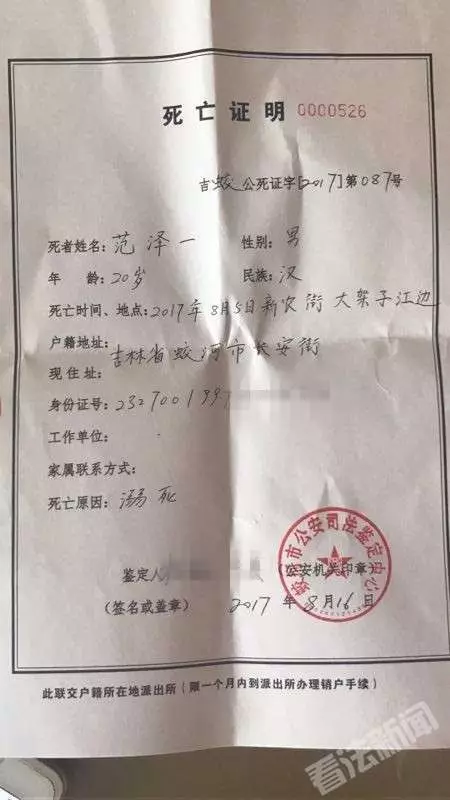 死亡证明 0000526
吉蛟公死证字[2017]第087号
死者姓名：范泽一 性别：男
年 龄：20岁 民族：汉
死亡时间、地点：2017年8月5日新农街 大架子江边
户籍地址：
吉林省蛟河市长安街
现 住 址：
身份证号：2327001997
工作单位：
家属联系方式：
死亡原因：溺死
鉴定人
公安机关印章）
（签名或盖章） 2017年8月16日
蛟河市公安司法鉴定中心
此联交户籍所在地派出所（限一个月内到派出所办理销户手续）
看法新闻